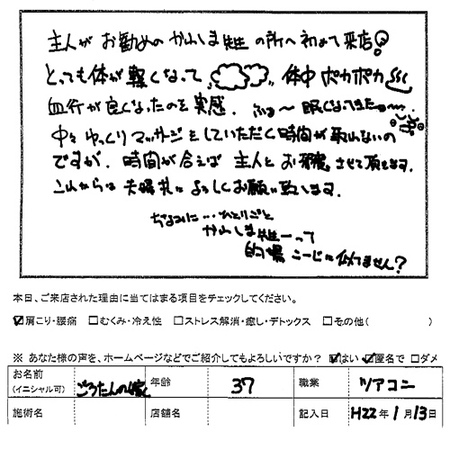 主人が お勧めの かわしま先生 の所へ 初めて 来店!
とっても体が 軽くなって 体中 ポカポカ
血行が 良くなったのを 実感. ふぁ〜 眠くなってきたぁ〜.
中々 ゆっくり マッサージを していただく 時間が 取れないの
ですが. 時間が 合えば 主人と お邪魔 させて 頂きます.
これからも 夫婦共に よろしくお願い致します.
ちなみに… ひとりごと
かわしま先生って
的場 こーじに似てません?
本日、ご来店された理由に当てはまる項目をチェックしてください。
☑肩こり・腰痛 □むくみ・冷え性 □ストレス解消・癒し・デトックス □その他( )
※ あなた様の声を、ホームページなどでご紹介してもよろしいですか? ☑はい ☑匿名で □ダメ
お名前 (イニシャル可) ごろたんの嫁 年齢 37 職業 ツアコン
施術名 店舗名 記入日 H22年 1月 13日